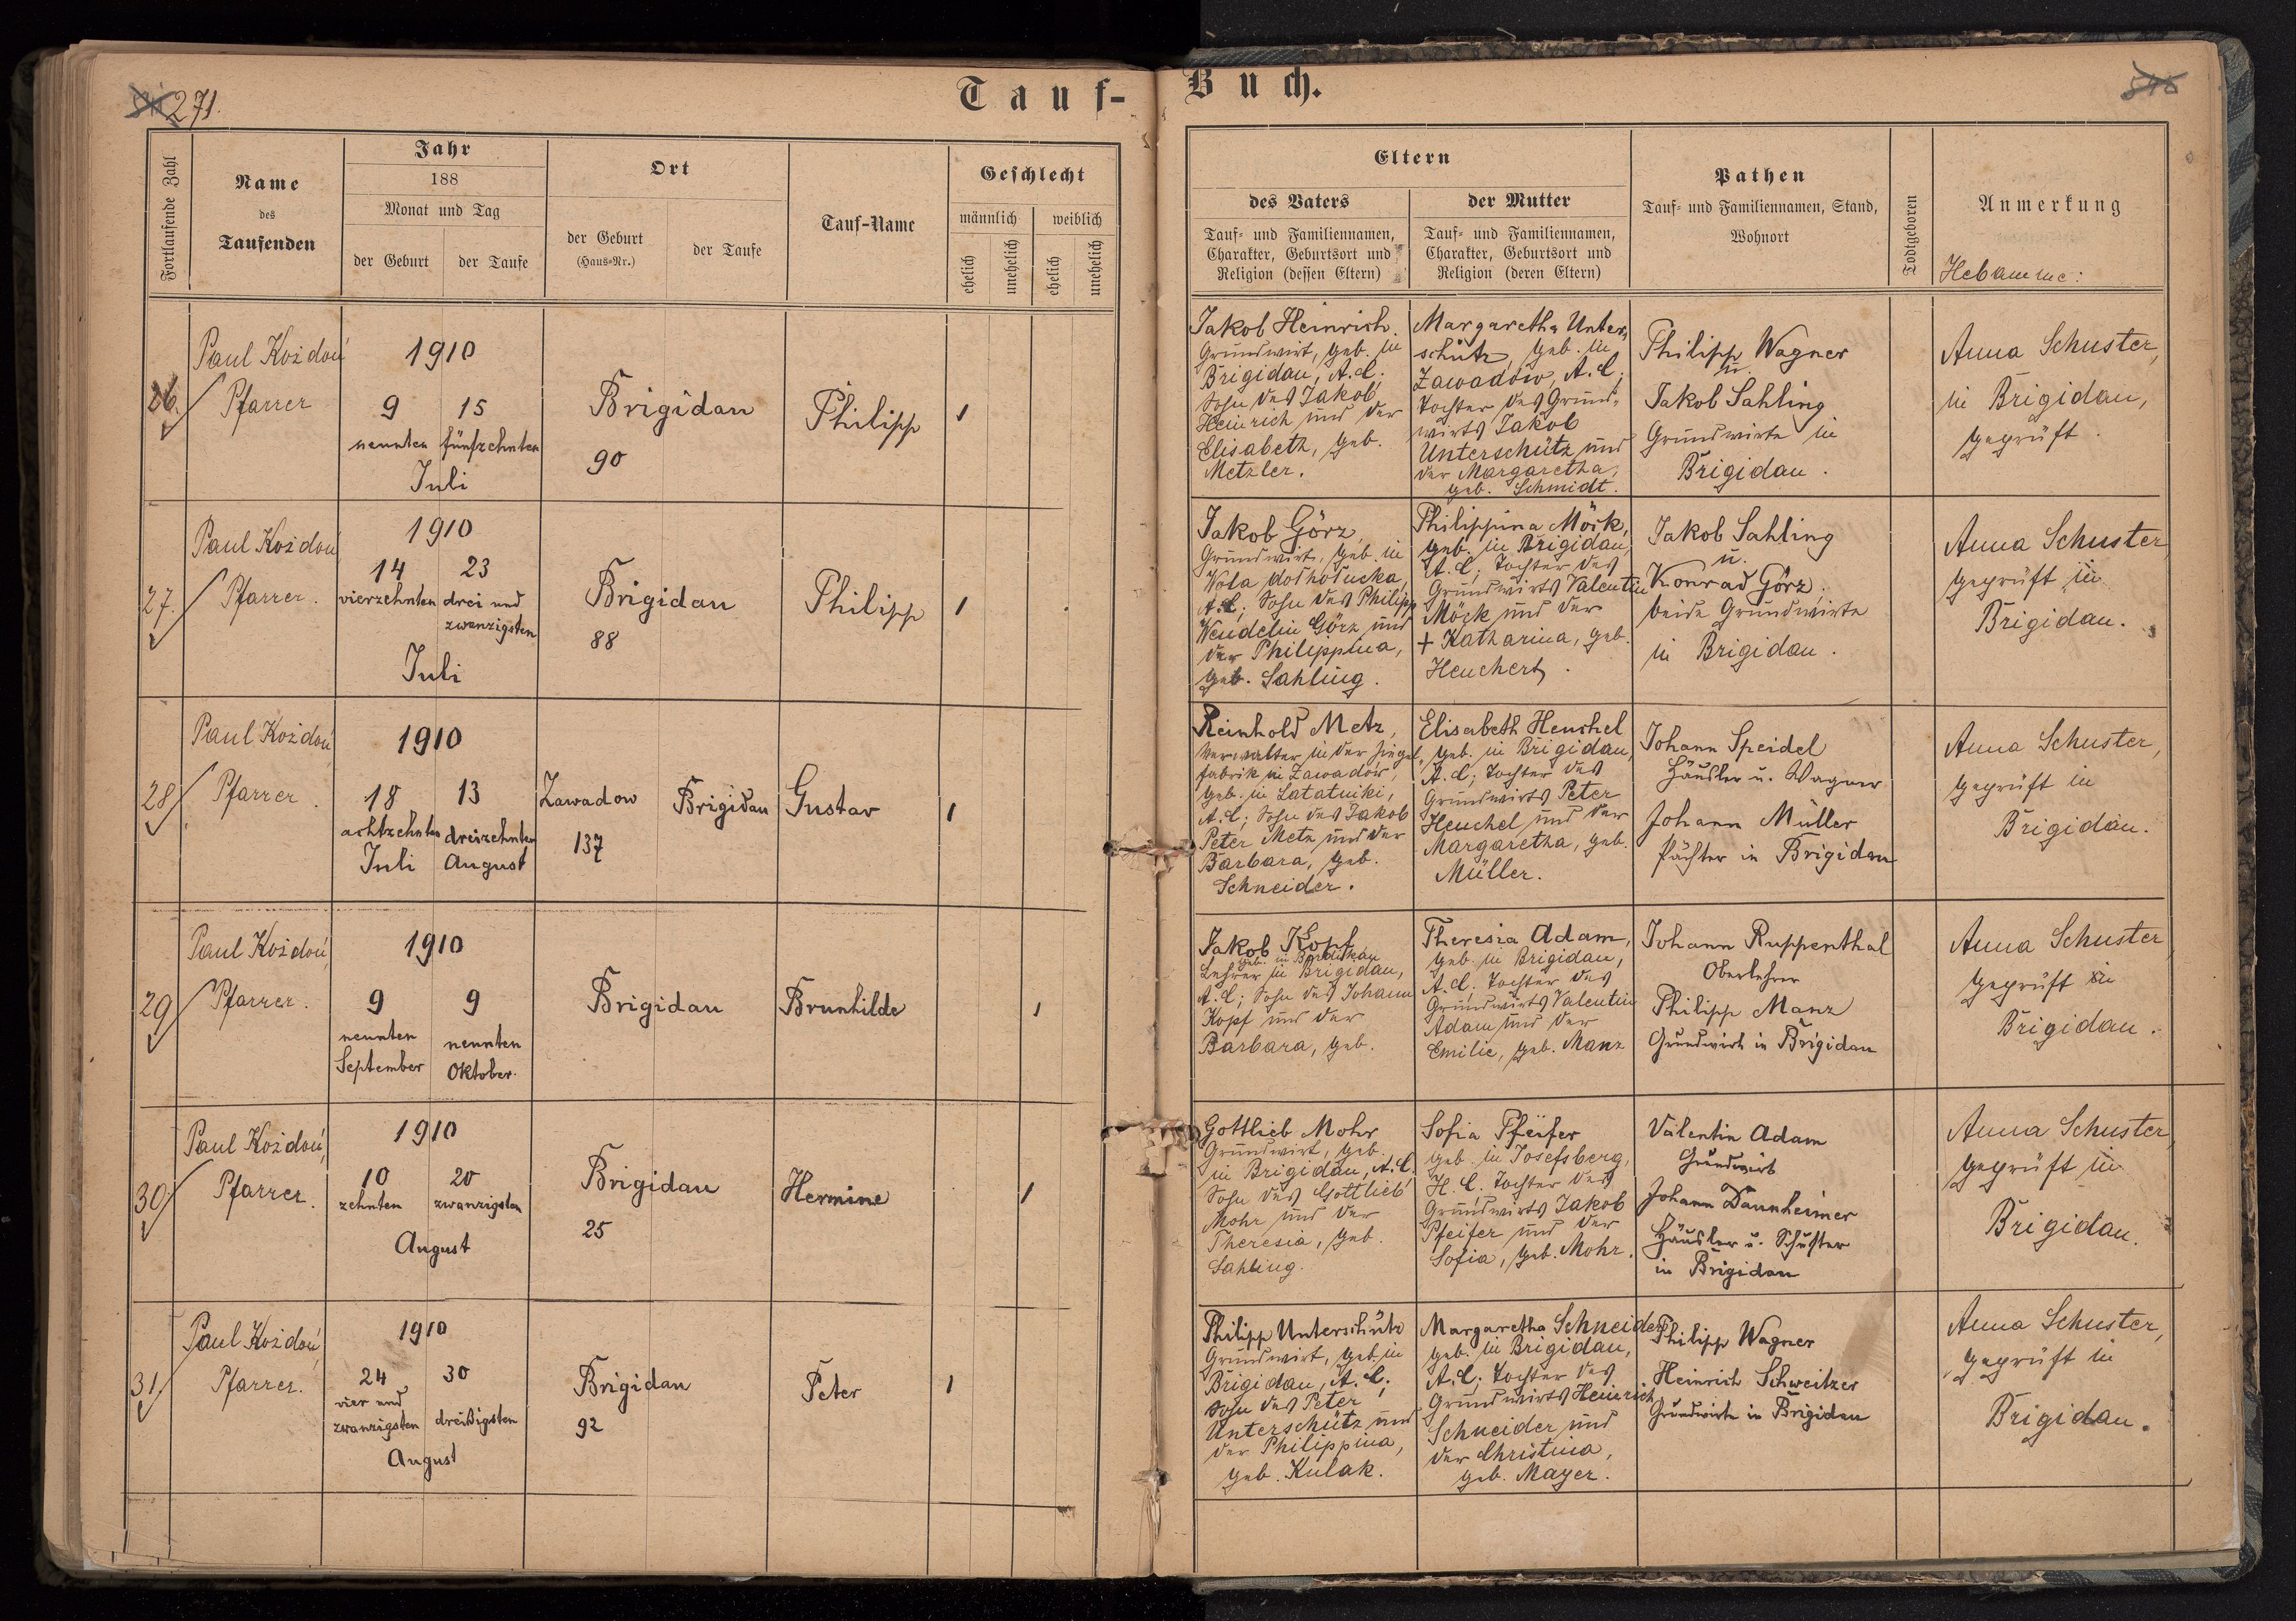 271.
Tauf-Buch.
Fortlaufende Zahl
Name
des
Taufenden
Jahr
188
Monat und Tag
der Geburt
der Taufe
Ort
der Geburt
(Haus-Nr.)
der Taufe
Tauf-Name
Geschlecht
männlich
weiblich
ehelich
unehelich
ehelich
unehelich
Eltern
des Vaters
Tauf- und Familiennamen,
Charakter, Geburtsort und
Religion (dessen Eltern)
der Mutter
Tauf- und Familiennamen,
Charakter, Geburtsort und
Religion (deren Eltern)
Pathen
Tauf- und Familiennamen, Stand,
Wohnort
Todtgeboren
Anmerkung
Hebamme:
26.
Paul Kożdoń
Pfarrer
1910
9
neunten
15
fünfzehnten
Juli
Brigidau
90
Philipp
1
Jakob Heinrich.
Grundwirt, geb. in
Brigidau, A.C.
Sohn des Jakob
Heinrich und der
Elisabeth, geb.
Metzler.
Margaretha Unter-
schütz, geb. in
Zawadów, A.C.
Tochter des Grund-
wirts Jakob
Unterschütz und
der Margaretha,
geb. Schmidt.
Philipp Wagner
u.
Jakob Sahling
Grundwirte in
Brigidau.
Anna Schuster,
in Brigidau,
geprüft.
27.
Paul Kożdoń
Pfarrer.
1910
14
vierzehnten
23
drei und
zwanzigsten
Juli
Brigidau
88
Philipp
1
Jakob Görz
Grundwirt, geb. in
Wola dołhołucka,
A.C; Sohn des Philipp
Wendelin Görz und
der Philippina,
geb. Sahling.
Philippina Möck,
geb. in Brigidau,
A.C; Tochter des
Grundwirts Valentin
Möck und der
+ Katharina, geb.
Heuchert.
Jakob Sahling
u.
Konrad Görz.
beide Grundwirte
in Brigidau.
Anna Schuster
geprüft in
Brigidau.
28
Paul Kożdoń
Pfarrer.
1910
18
achtzehnten
Juli
13
dreizehnten
August
Zawadow
137
Brigidau
Gustav
1
Reinhold Metz,
Verwalter in der Ziegel-
fabrik in Zawadów,
geb. in
A.C; Sohn des Jakob
Peter Metz und der
Barbara, geb.
Schneider.
Elisabeth Heuchel
geb. in Brigidau,
A.C; Tochter des
Grundwirts Peter
Heuchel und der
Margaretha, geb.
Müller.
Johann Speidel
Häusler u. Wagner
Johann Müller
Pächter in Brigidau
Anna Schuster,
geprüft in
Brigidau.
29
Paul Kożdoń,
Pfarrer.
1910
9
neunten
September
9
neunten
Oktober.
Brigidau
Brunhilde
1
Jakob Kopf,
geb. in
Lehrer in Brigidau,
A.C; Sohn des Johann
Kopf und der
Barbara, geb.
Theresia Adam,
geb. in Brigidau,
A.C. Tochter des
Grundwirts Valentin
Adam und der
Emilie, geb. Manz
Johann Ruppenthal
Oberlehrer
Philipp Manz
Grundwirt in Brigidau
Anna Schuster
geprüft in
Brigidau.
30
Paul Kożdoń,
Pfarrer.
1910
10
zehnten
20
zwanzigsten
August
Brigidau
25
Hermine
1
Gottlieb Mohr
Grundwirt, geb.
in Brigidau, A.C.
Sohn des Gottlieb
Mohr und der
Theresia, geb.
Sahling.
Sofia Pfeifer
geb. in Josefsberg,
H.C. Tochter des
Grundwirts Jakob
Pfeifer und der
Sofia, geb. Mohr.
Valentin Adam
Grundwirt
Johann Dannheimer
Häusler u. Schuster
in Brigidau
Anna Schuster
geprüft in
Brigidau.
31.
Paul Kożdoń,
Pfarrer.
1910
24
vier und
zwanzigsten
30
dreißigsten
August
Brigidau
92
Peter
1
Philipp Unterschütz
Grundwirt, geb. in
Brigidau, A.C;
Sohn des Peter
Unterschütz und
der Philippina,
geb. Kulak.
Margaretha Schneider
geb. in Brigidau,
A.C; Tochter des
Grundwirts Heinrich
Schneider und
der Christina,
geb. Mayer.
Philipp Wagner
Heinrich Schweitzer
Grundwirte in Brigidau
Anna Schuster,
geprüft in
Brigidau.